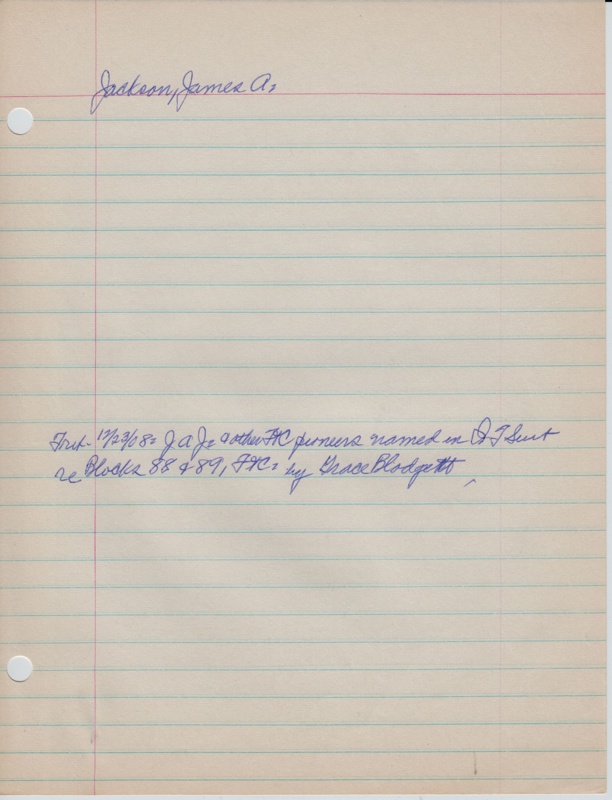 Jackson, James A.
Trib- 12/23/08: J A J. & other FTC pioneers named in Q T Suit
re Blocks 88 & 89, FTC. by Grace Blodgett